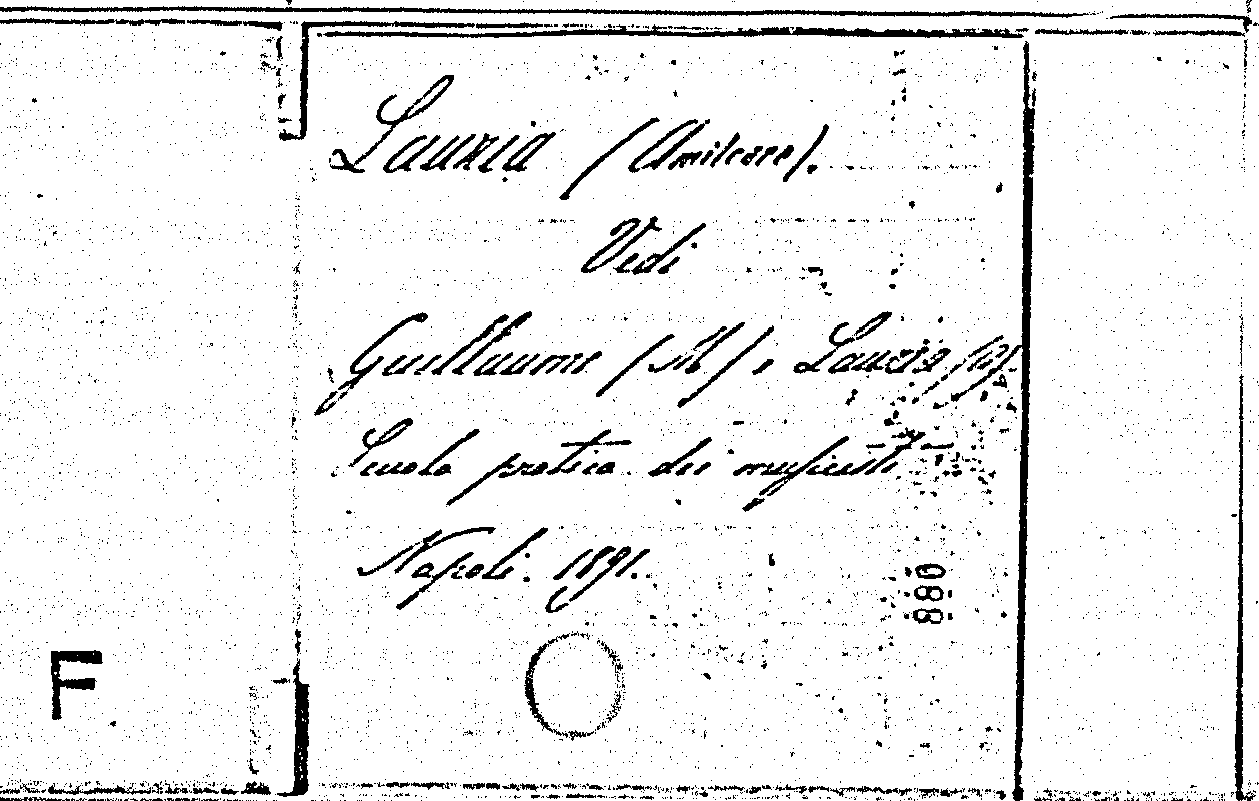 Lauria (Amilcare).
Vedi
Guillaume (M) e Lauria (A).
Scuola pratica dei musicisti
Napoli. 1891.
880
F